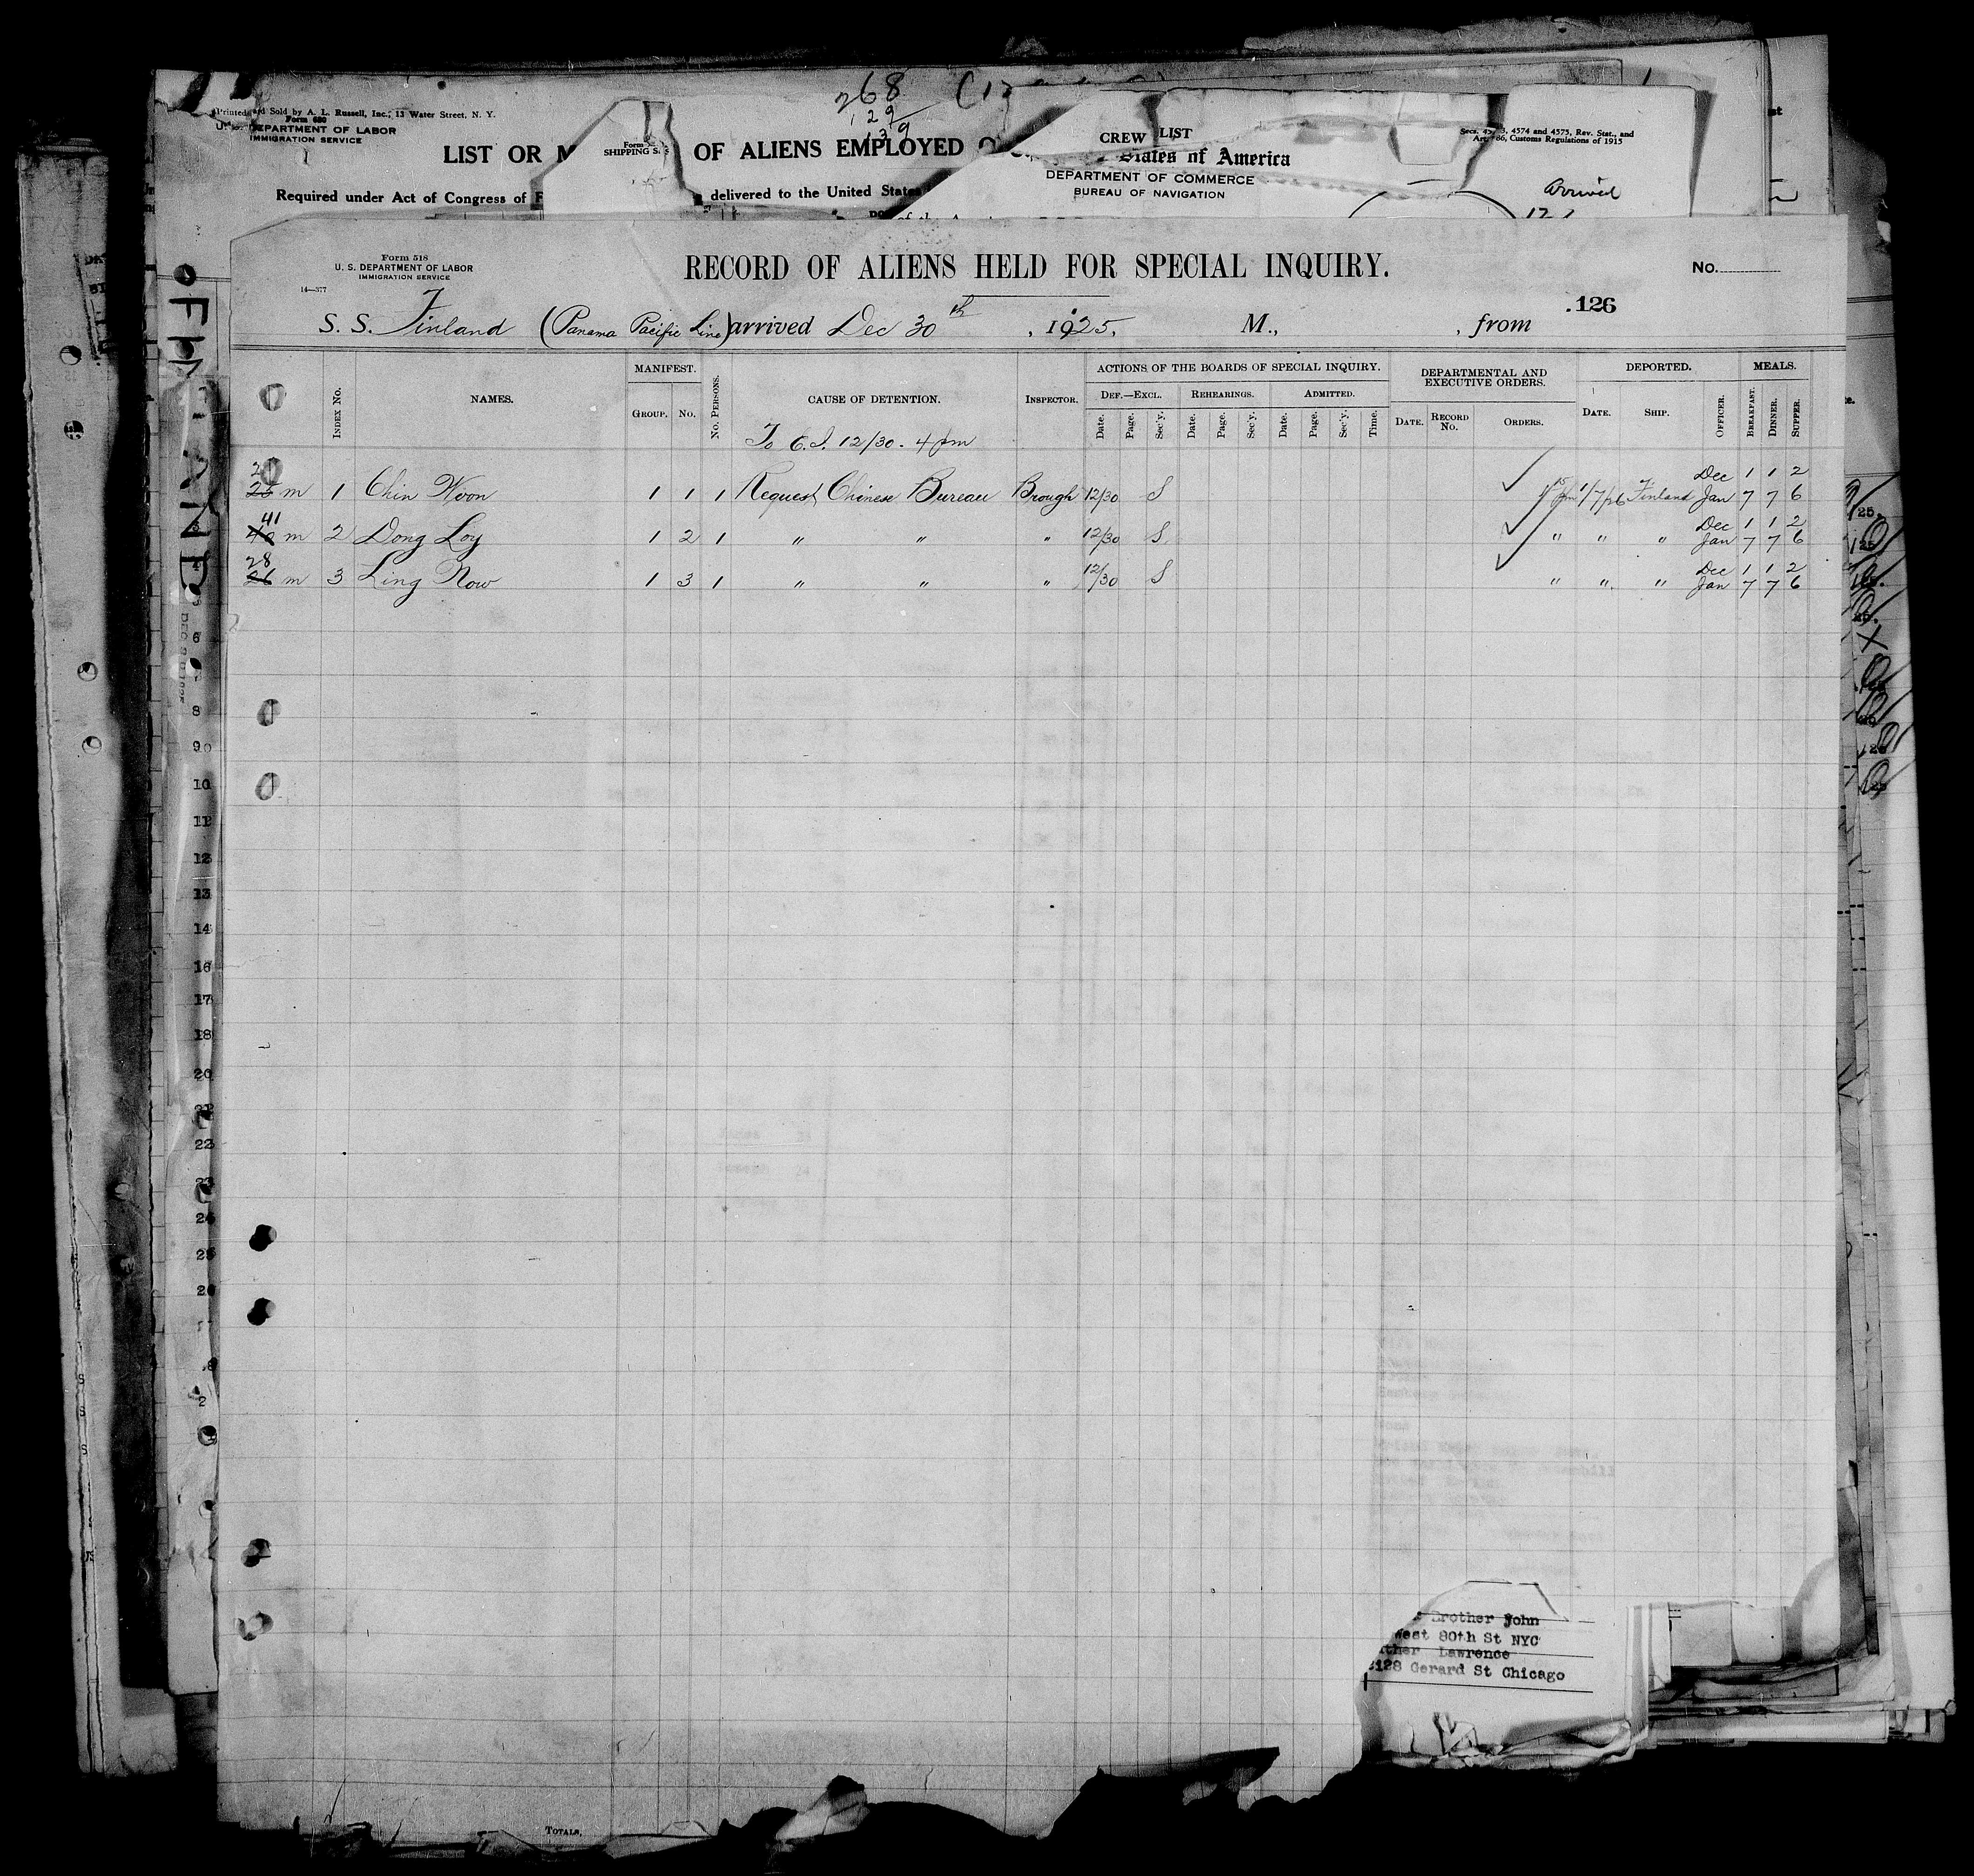 268
129
139
Printed and Sold by A. L. Russell, Inc., 13 Water Street, N. Y.
Form 680
DEPARTMENT OF LABOR
IMMIGRATION SERVICE
LIST OR OF ALIENS EMPLOYED
SHIPPING
CREW LIST
States of America
DEPARTMENT OF COMMERCE
BUREAU OF NAVIGATION
4574 and 4575, Rev. Stat., and
Customs Regulations of 1915
arrived
Required under Act of Congress of delivered to the United States
Form 518
U. S. DEPARTMENT OF LABOR
IMMIGRATION SERVICE
14—377
RECORD OF ALIENS HELD FOR SPECIAL INQUIRY.
No.
126
S. S. Finland (Panama Pacific Line) arrived Dec 30th, 1925, M., , from
INDEX No. NAMES. MANIFEST. GROUP. No. No. PERSONS. CAUSE OF DETENTION. INSPECTOR. ACTIONS OF THE BOARDS OF SPECIAL INQUIRY. DEPARTMENTAL AND EXECUTIVE ORDERS. DEPORTED. MEALS.
DEF.—EXCL. REHEARINGS. ADMITTED.
Date. Page. Sec'y. Date. Page. Sec'y. Date. Page. Sec'y. Time. DATE. RECORD No. ORDERS. DATE. SHIP. OFFICER. BREAKFAST. DINNER. SUPPER.
To C.I. 12/30 - 4 pm
Dec 1 1 2
m 1 Chin Woon 1 1 1 Request Chinese Bureau Brough 12/30 S 1/7/26 Finland Jan 7 7 6
41 Dec 1 1 2
m 2 Dong Loy 1 2 1 " " " 12/30 S " " " Jan 7 7 6
28 Dec 1 1 2
26 m 3 Ling Now 1 3 1 " " " 12/30 S " " " Jan 7 7 6
6
8
9
10
11
12
13
14
16
17
18
20
22
23
24
25
26
Brother John
West 80th St NYC
Lawrence
Gerard St Chicago
TOTALS,